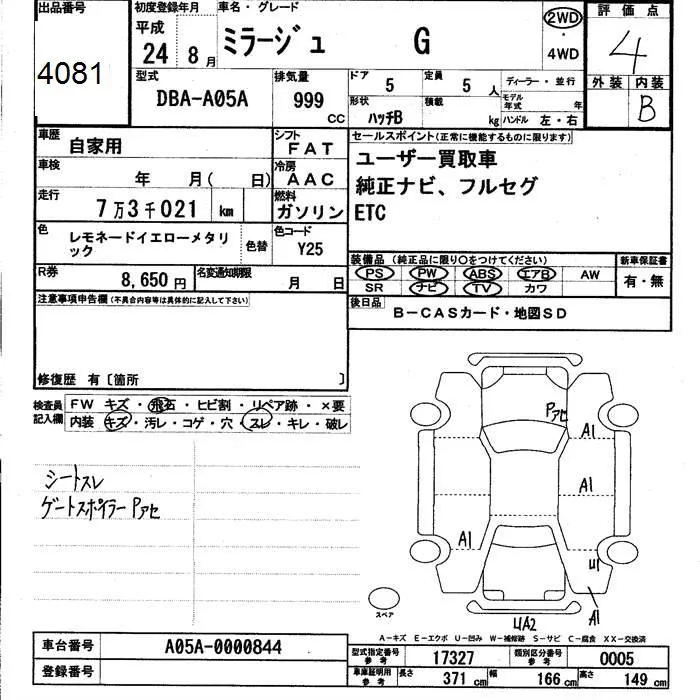 出品番号
4081
初度登録年月
平成
24 8月
車名・グレード
ミラージュ G
2WD
・
4WD
評価点
4
外装 内装
B
型式
DBA-A05A
排気量
999
CC
ドア
5
定員
5 人
ディーラー・並行
形状
ハッチB
積載
kg
モデル年式 年
ハンドル 左・右
車歴
自家用
シフト
FAT
車検
年 月( 日)
冷房
AAC
走行
7万3千021 km
燃料
ガソリン
色
レモネードイエローメタリック
色替
色コード
Y25
R券
8,650円
名変通知期限
月 日
セールスポイント(正常に機能するものに限ります)
ユーザー買取車
純正ナビ、フルセグ
ETC
装備品(純正品に限り○をつけてください)
PS PW ABS エアB AW
SR ナビ TV カワ
新車保証書
有・無
後日品
B-CASカード・地図SD
注意事項申告欄(不具合内容等は具体的に記入して下さい)
修復歴 有〔箇所 〕
検査員記入欄
FW キズ・飛石・ヒビ割・リペア跡・×要
内装 キズ・汚レ・コゲ・穴・スレ・キレ・破レ
シートスレ
ゲートスポイラーPアセ
Pアセ
A1
A1
A1
U1
A1
UA2
スペア
A-キズ E-エクボ U-凹み W-補修跡 S-サビ C-腐食 XX-交換済
車台番号
A05A-0000844
登録番号
型式指定番号
参考
17327
類別区分番号
参考
0005
車庫証明用
参考
長さ
371 cm
幅
166 cm
高さ
149 cm